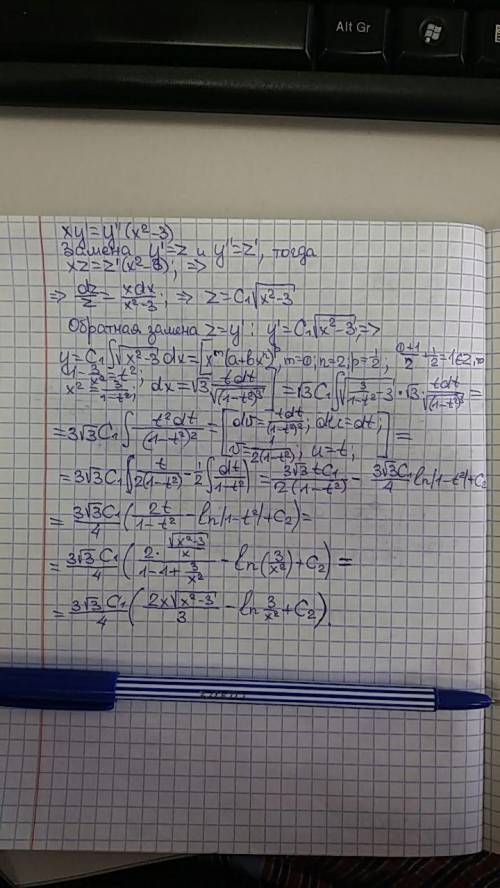 Alt Gr
xy' = y''(x²-3)
Замена y'=z и y''=z', тогда
xz=z'(x²-3); =>
=> dz/z = xdx/(x²-3); => z=C₁√(x²-3)
Обратная замена z=y': y'=C₁√(x²-3); =>
y=C₁∫√(x²-3)dx=[x^m(a+bx^n)^p, m=0; n=2; p=1/2; (0+1)/2+1/2=1∈Z, то
1-3/x²=t²; x²=3/(1-t²); dx=√3 tdt/√((1-t²)³)]=√3C₁∫√(3/(1-t²)-3)·√3·tdt/√((1-t²)³)=
=3√3C₁∫t²dt/(1-t²)²=[dv=tdt/(1-t²)²; du=dt; v=1/(2(1-t²)); u=t;]=
=3√3C₁∫t/(2(1-t²))-1/2∫dt/(1-t²)=3√3tC₁/(2(1-t²))-3√3C₁/4 ln|1-t²|+C₂
=3√3C₁/4(2t/(1-t²)-ln|1-t²|+C₂)=
=3√3C₁/4(2·(√(x²-3)/x)/(1-1+3/x²)-ln(3/x²)+C₂)=
=3√3C₁/4(2x√(x²-3)/3-ln 3/x²+C₂).